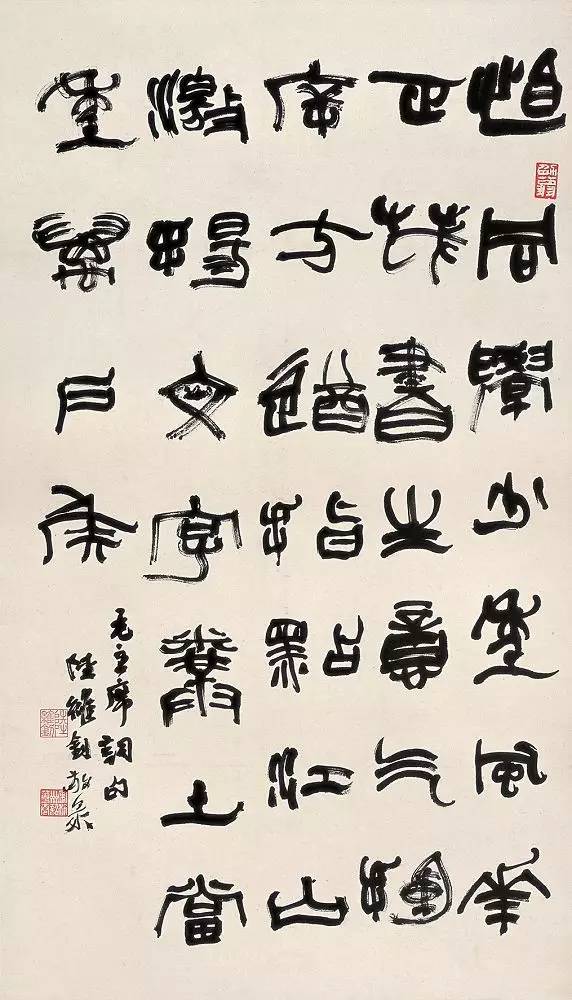 恰同學少年風華
正茂書生意氣揮
斥方遒指點江山
激揚文字糞土當
年萬戶侯
毛主席詞句
陸維釗敬篆